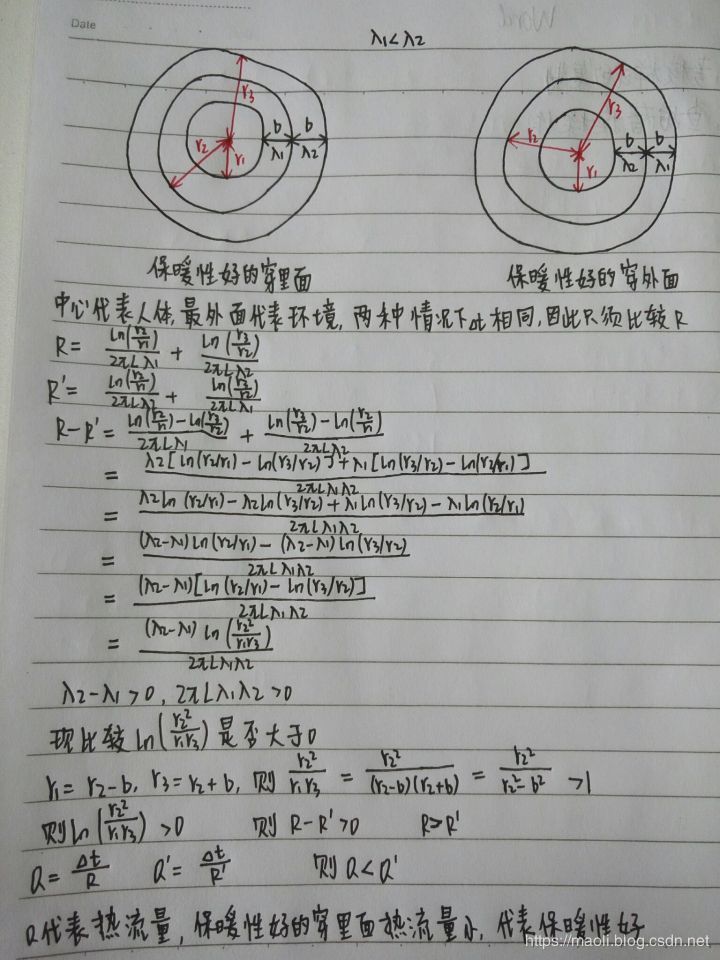 Date
λ1<λ2
r3 b b
r2 r1 λ1 λ2
r3 b b
r2 r1 λ2 λ1
保暖性好的穿里面
保暖性好的穿外面
中心代表人体,最外面代表环境,两种情况下Δt相同,因此只须比较R
R= ln(r2/r1)/2πLλ1 + ln(r3/r2)/2πLλ2
R'= ln(r2/r1)/2πLλ2 + ln(r3/r2)/2πLλ1
R-R'= ln(r2/r1)-ln(r3/r2)/2πLλ1 + ln(r3/r2)-ln(r2/r1)/2πLλ2
= λ2[ln(r2/r1)-ln(r3/r2)]+λ1[ln(r3/r2)-ln(r2/r1)]/2πLλ1λ2
= λ2ln(r2/r1)-λ2ln(r3/r2)+λ1ln(r3/r2)-λ1ln(r2/r1)/2πLλ1λ2
= (λ2-λ1)ln(r2/r1)-(λ2-λ1)ln(r3/r2)/2πLλ1λ2
= (λ2-λ1)[ln(r2/r1)-ln(r3/r2)]/2πLλ1λ2
= (λ2-λ1)ln(r2²/r1r3)/2πLλ1λ2
λ2-λ1>0,2πLλ1λ2>0
现比较ln(r2²/r1r3)是否大于0
r1=r2-b,r3=r2+b,则 r2²/r1r3 = r2²/(r2-b)(r2+b) = r2²/r2²-b² >1
则ln(r2²/r1r3)>0 则R-R'>0 R>R'
Q=Δt/R Q'=Δt/R' 则Q<Q'
Q代表热流量,保暖性好的穿里面热流量小,代表保暖性好
https://maoli.blog.csdn.net